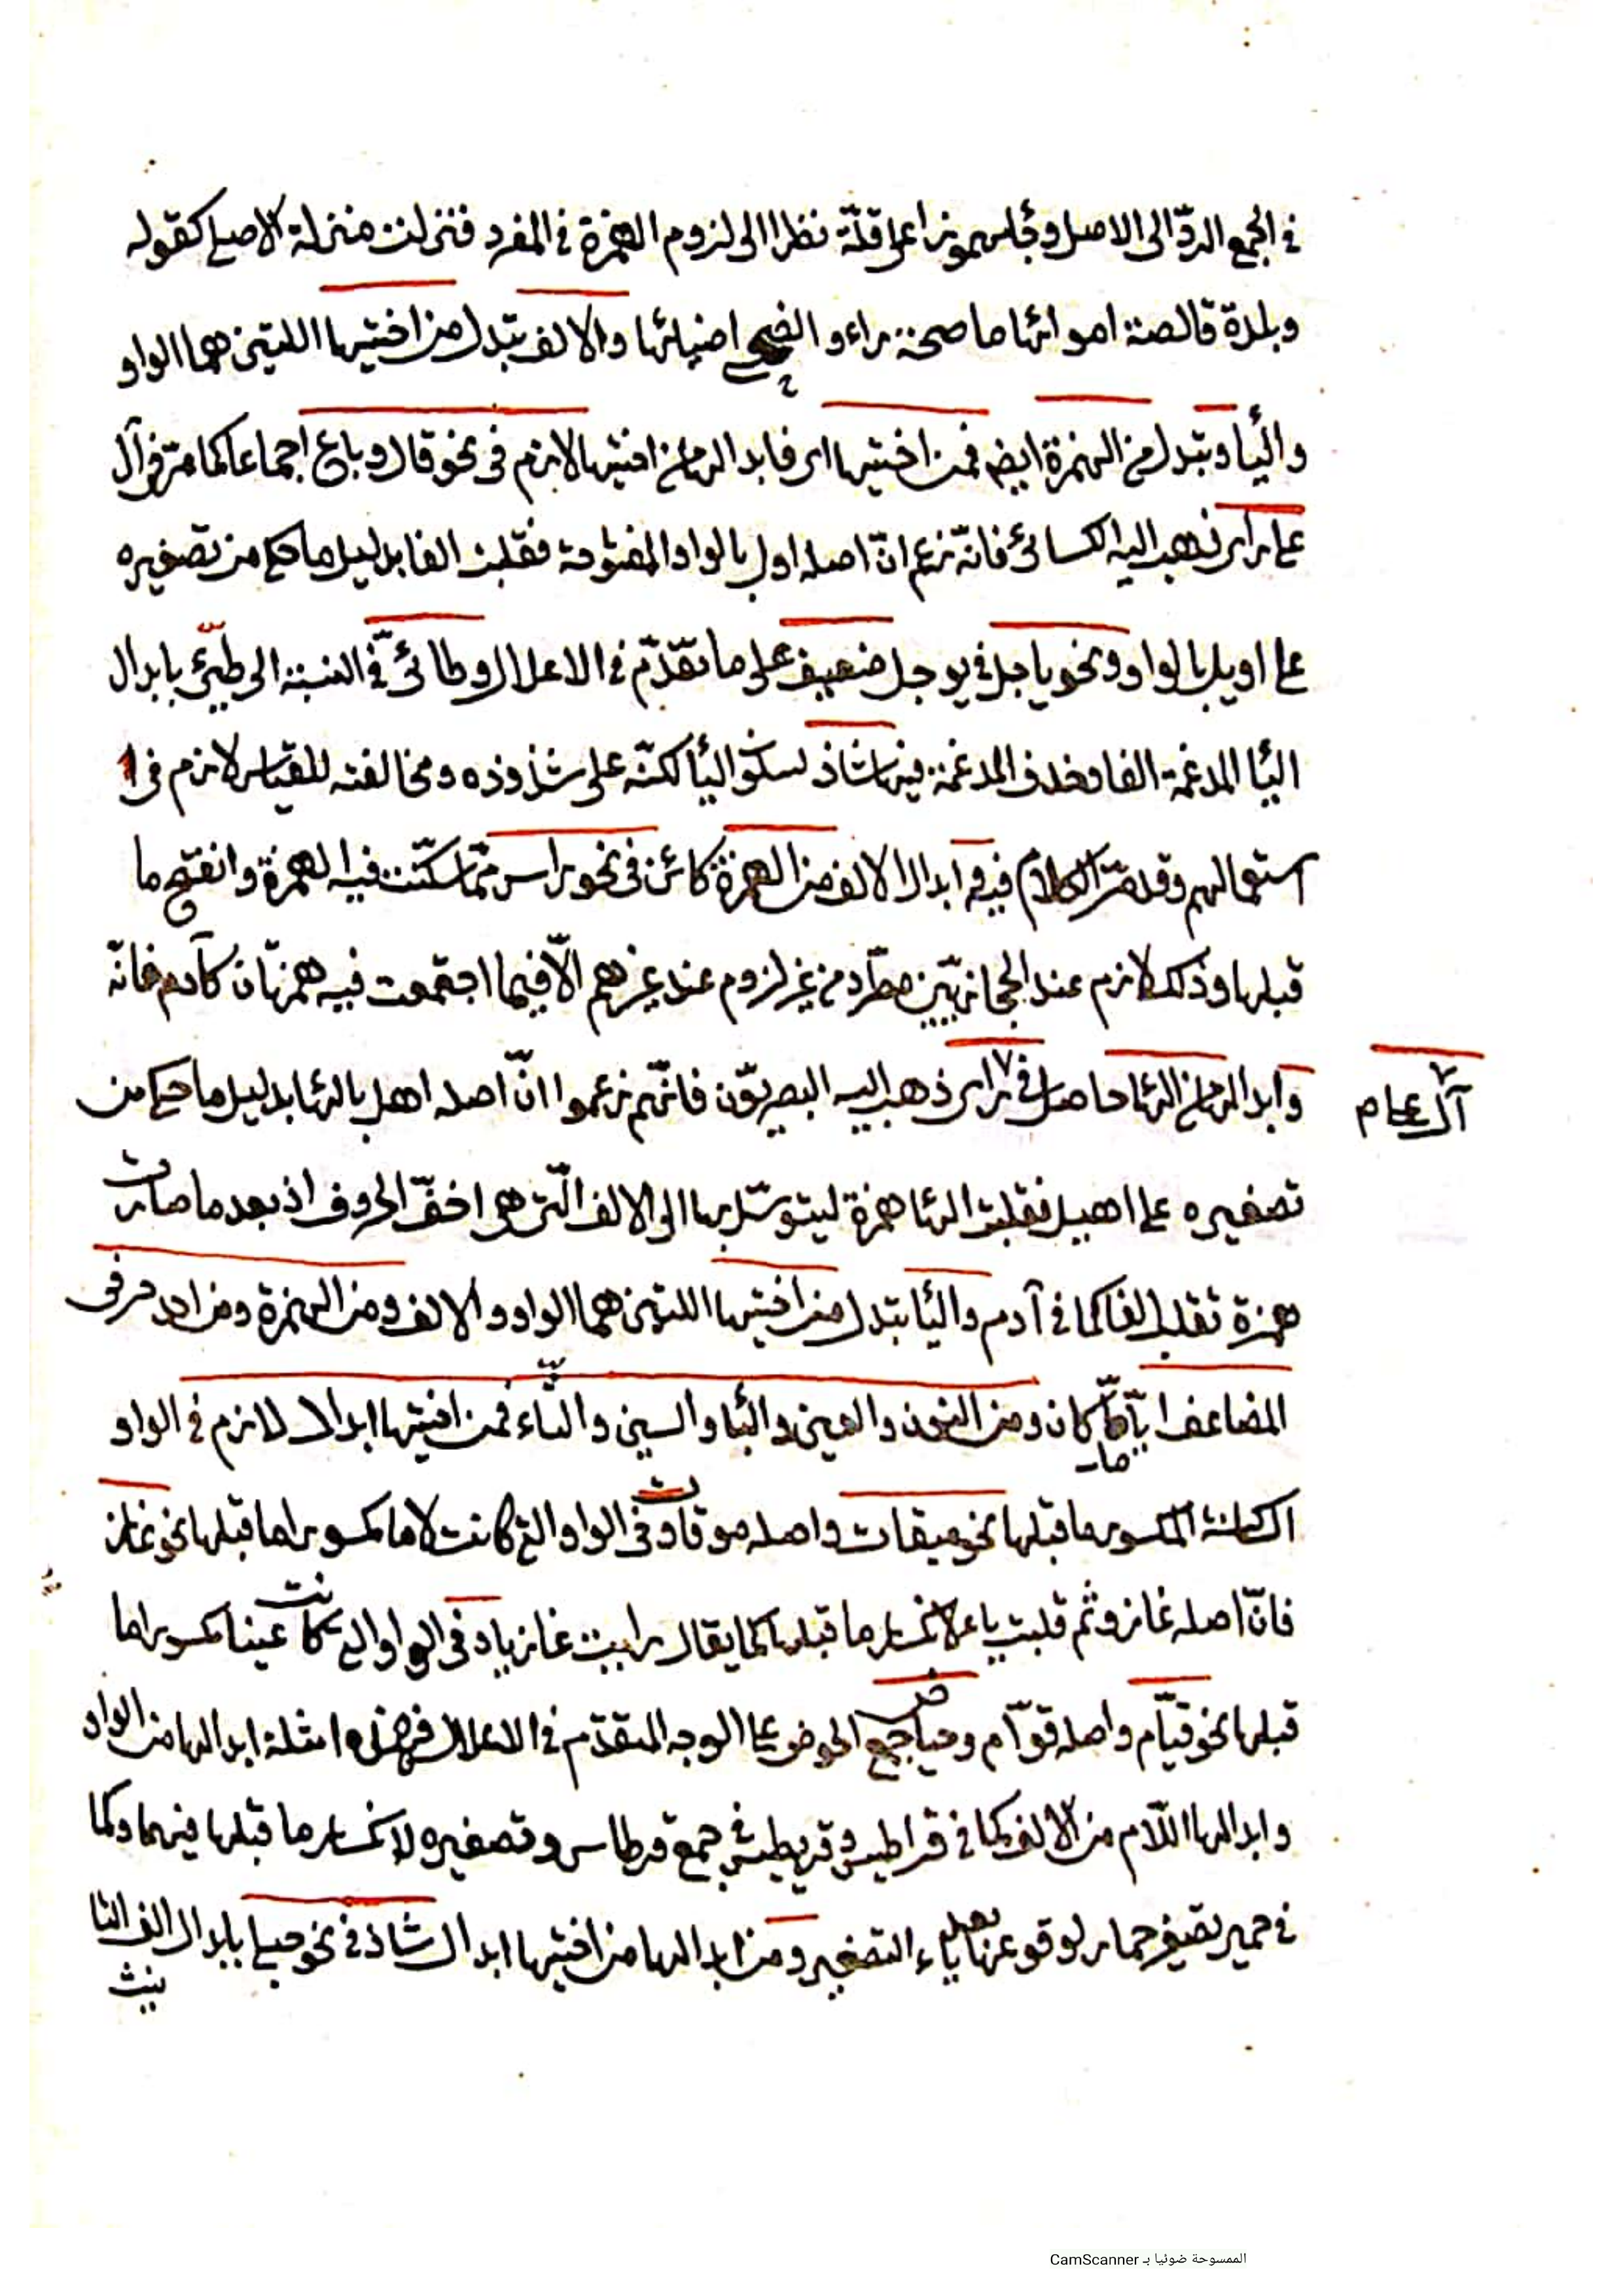 في الجمع الردّ الى الاصل وجاء مهموزا على قلّة نظرا الى لزوم الهمزة في المفرد فنزلت منزلة الاصلي كقوله
وبلدة قالصة امواؤها ماصحة رأد الضحى افياؤها والالف تبدل من اختيها اللتين هما الواو
واليا وتبدل من الهمزة ايض فمن اختيها اى فابدالها من اختيها لازم في نحو قال وباع اجماعا كما مرّ وفى آل
على راى ذهب اليه الكسائى فانّه زعم انّ اصله اول بالواو المفتوحة فقلبت الفا بدليل ما حكى من تصغيره
على اويل بالواو ونحو ياجل في يوجل ضعيف على ما تقدّم في الاعلال وطائىّ في النسبة الى طيّئ بابدال
اليا المدغمة الفا وحذف المدغمة فيها شاذ لسكون اليا لكنّه على شذوذه ومخالفته للقياس لازم فى
استعمالهم وقد مرّ الكلام فيه و ابدال الالف من الهمزة كائن فى نحو راس ممّا سكّنت فيه الهمزة وانفتح ما
قبلها وذلك لازم عند الحجازيّين مطّرد من غير لزوم عند غيرهم الّا فيما اجتمعت فيه همزتان كآدم فانّه
وابدالها من الها حاصل فى راى ذهب اليه البصريّون فانّهم زعموا انّ اصله اهل بالها بدليل ما حكى من
آل على م
تصغيره على اهيل فقلبت الها همزة ليتوسّل بها الى الالف الّتى هى اخفّ الحروف اذ بعد ما صارت
همزة تقلب الفا كما في آدم واليا تبدل من اختيها اللتين هما الواو والالف ومن الهمزة ومن احد حرفى
المضاعف ايّا ما كان ومن النون والعين والبا والسين والثاء فمن اختيها ابدالا لازم في الواو
الساكنة المكسور ما قبلها نحو ميقات واصله موقات وفى الواو التى كانت لاما مكسورا ما قبلها نحو غاز
فانّ اصله غازو ثم قلبت ياء لانكسار ما قبلها كما يقال رايت غازيا وفى الواو التى كانت عينا مكسورا ما
قبلها نحو قيّام واصله قوّام وحياض جمع الحوض على الوجه المتقدّم في الاعلال فهذه امثلة ابدالها من الواو
وابدالها اللّام من الالف كما في قراطيس وقريطيس في جمع قرطاس وتصغيره لانكسار ما قبلها فيهما وكما
في حمير تصغير حمار لوقوعها بعد ياء التصغير ومن ابدالها من اختيها ابدال شاذ في نحو حبلى بابدال الف التا
نيث
الممسوحة ضوئيا بـ CamScanner